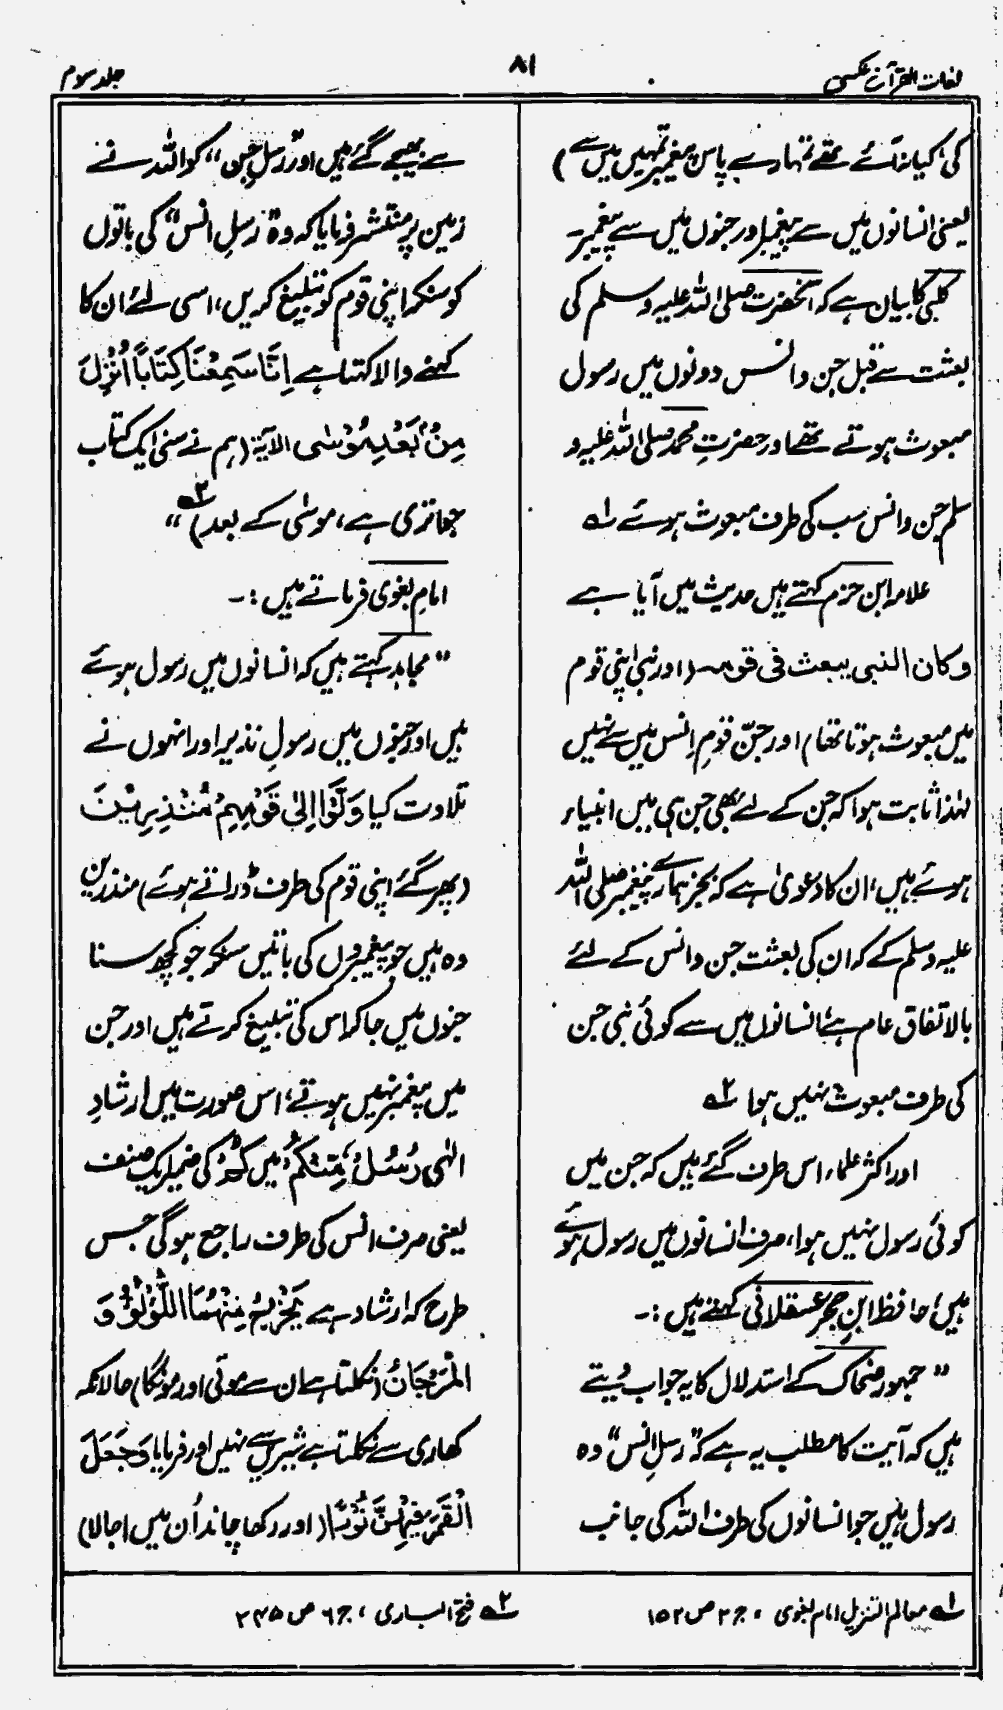 لغات القرآن عکسی
۸۱
جلد سوم
کی، کیا نہ آئے تھے تمہارے پاس پیغمبر تمہیں میں سے)
یعنی انسانوں میں سے پیغمبر اور جنوں میں سے پیغمبر۔
کلبی کا بیان ہے کہ آنحضرت صلی اللہ علیہ وسلم کی
بعثت سے قبل جن و انس دونوں میں رسول
مبعوث ہوتے تھے اور حضرتِ محمد صلی اللہ علیہ و
سلم جن و انس سب کی طرف مبعوث ہوئے ؎۱
علامہ ابن حزم کہتے ہیں حدیث میں آیا ہے
وکان النبی یبعث فی قومہ (اور نبی اپنی قوم
میں مبعوث ہوتا تھا) اور جنّ قومِ انس میں سے نہیں
لہٰذا ثابت ہوا کہ جن کے لئے بھی جن ہی میں انبیاء
ہوئے ہیں، ان کا دعویٰ ہے کہ بجز ہمارے پیغمبر صلی اللہ
علیہ وسلم کے کہ ان کی بعثت جن و انس کے لئے
بالاتفاق عام ہے، انسانوں میں سے کوئی نبی جن
کی طرف مبعوث نہیں ہوا ؎۲
اور اکثر علماء اس طرف گئے ہیں کہ جن میں
کوئی رسول نہیں ہوا، صرف انسانوں میں رسول ہوئے
ہیں، حافظ ابنِ حجر عسقلانی کہتے ہیں :۔
” جمہور ضحاک کے استدلال کا یہ جواب دیتے
ہیں کہ آیت کا مطلب یہ ہے کہ ”رسلِ انس“ وہ
رسول ہیں جو انسانوں کی طرف اللہ کی جانب
سے بھیجے گئے ہیں اور ”رسلِ جن“ کو اللہ نے
زمین پر منتشر فرمایا کہ وہ ”رسلِ انس“ کی باتوں
کو سنکر اپنی قوم کو تبلیغ کریں، اسی لئے ان کا
کہنے والا کہتا ہے اِنَّا سَمِعْنَا کِتَابًا اُنْزِلَ
مِنْ بَعْدِ مُوْسٰی الآیۃ (ہم نے سنی ایک کتاب
جو اتری ہے، موسٰی کے بعد) “ ؎۲
امام بغوی فرماتے ہیں :۔
” مجاہد کہتے ہیں کہ انسانوں میں رسول ہوئے
ہیں اور جنوں میں رسولِ نذیر اور انہوں نے
تلاوت کیا وَلَّوْا اِلٰی قَوْمِہِمْ مُنْذِرِیْنَ
(پھر گئے اپنی قوم کی طرف ڈراتے ہوئے) منذرین
وہ ہیں جو پیغمبروں کی باتیں سنکر جو کچھ سنا
جنوں میں جا کر اس کی تبلیغ کرتے ہیں اور جن
میں پیغمبر نہیں ہوتے، اس صورت میں ارشادِ
الٰہی رُسُلٌ مِّنْکُمْ میں کُمْ کی ضمیر ایک صنف
یعنی صرف انس کی طرف راجع ہوگی جس
طرح کہ ارشاد ہے یَخْرُجُ مِنْہُمَا اللُّؤْلُؤُ وَ
الْمَرْجَانُ (نکلتا ہے ان سے موتی اور مونگا) حالانکہ
کھاری سے نکلتا ہے شیریں سے نہیں اور فرمایا وَجَعَلَ
الْقَمَرَ فِیْہِنَّ نُوْرًا (اور رکھا چاند اُن میں اجالا)
؎۱ معالم التنزیل امام بغوی ، ج ۲ ص ۱۵۲
؎۲ فتح الباری ، ج ۶ ص ۲۴۵